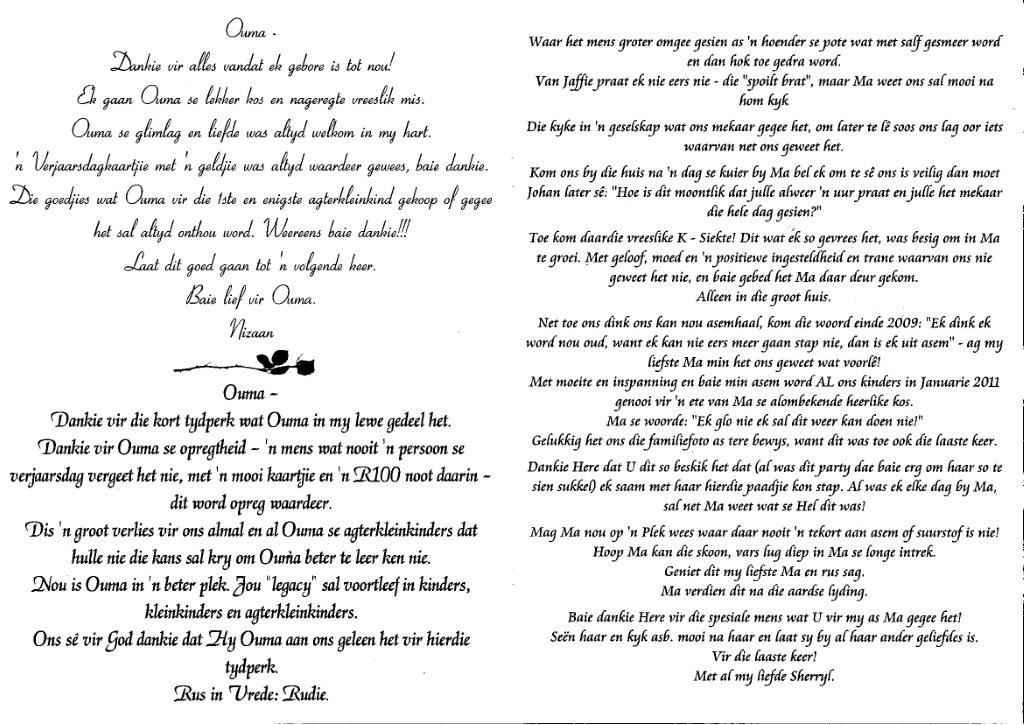 Ouma -
Dankie vir alles vandat ek gebore is tot nou!
Ek gaan Ouma se lekker kos en nageregte vreeslik mis.
Ouma se glimlag en liefde was altyd welkom in my hart.
'n Verjaarsdagkaartjie met 'n geldjie was altyd waardeer gewees, baie dankie.
Die goedjies wat Ouma vir die 1ste en enigste agterkleinkind gekoop of gegee
het sal altyd onthou word. Weereens baie dankie!!!
Laat dit goed gaan tot 'n volgende keer.
Baie lief vir Ouma.
Nizaan
Ouma –
Dankie vir die kort tydperk wat Ouma in my lewe gedeel het.
Dankie vir Ouma se opregtheid – 'n mens wat nooit 'n persoon se
verjaarsdag vergeet het nie, met 'n mooi kaartjie en 'n R100 noot daarin –
dit word opreg waardeer.
Dis 'n groot verlies vir ons almal en al Ouma se agterkleinkinders dat
hulle nie die kans sal kry om Ouma beter te leer ken nie.
Nou is Ouma in 'n beter plek. Jou "legacy" sal voortleef in kinders,
kleinkinders en agterkleinkinders.
Ons sê vir God dankie dat Hy Ouma aan ons geleen het vir hierdie
tydperk.
Rus in Vrede: Rudie.
Waar het mens groter omgee gesien as 'n hoender se pote wat met salf gesmeer word
en dan hok toe gedra word.
Van Jaffie praat ek nie eers nie - die "spoilt brat", maar Ma weet ons sal mooi na
hom kyk
Die kyke in 'n geselskap wat ons mekaar gegee het, om later te lê soos ons lag oor iets
waarvan net ons geweet het.
Kom ons by die huis na 'n dag se kuier by Ma bel ek om te sê ons is veilig dan moet
Johan later sê: "Hoe is dit moontlik dat julle alweer 'n uur praat en julle het mekaar
die hele dag gesien?"
Toe kom daardie vreeslike K - Siekte! Dit wat ek so gevrees het, was besig om in Ma
te groei. Met geloof, moed en 'n positiewe ingesteldheid en trane waarvan ons nie
geweet het nie, en baie gebed het Ma daar deur gekom.
Alleen in die groot huis.
Net toe ons dink ons kan nou asemhaal, kom die woord einde 2009: "Ek dink ek
word nou oud, want ek kan nie eers meer gaan stap nie, dan is ek uit asem" - ag my
liefste Ma min het ons geweet wat voorlê!
Met moeite en inspanning en baie min asem word AL ons kinders in Januarie 2011
genooi vir 'n ete van Ma se alombekende heerlike kos.
Ma se woorde: "Ek glo nie ek sal dit weer kan doen nie!"
Gelukkig het ons die familiefoto as tere bewys, want dit was toe ook die laaste keer.
Dankie Here dat U dit so beskik het dat (al was dit party dae baie erg om haar so te
sien sukkel) ek saam met haar hierdie paadjie kon stap. Al was ek elke dag by Ma,
sal net Ma weet wat se Hel dit was!
Mag Ma nou op 'n Plek wees waar daar nooit 'n tekort aan asem of suurstof is nie!
Hoop Ma kan die skoon, vars lug diep in Ma se longe intrek.
Geniet dit my liefste Ma en rus sag.
Ma verdien dit na die aardse lyding.
Baie dankie Here vir die spesiale mens wat U vir my as Ma gegee het!
Seën haar en kyk asb. mooi na haar en laat sy by al haar ander geliefdes is.
Vir die laaste keer!
Met al my liefde Sherryl.